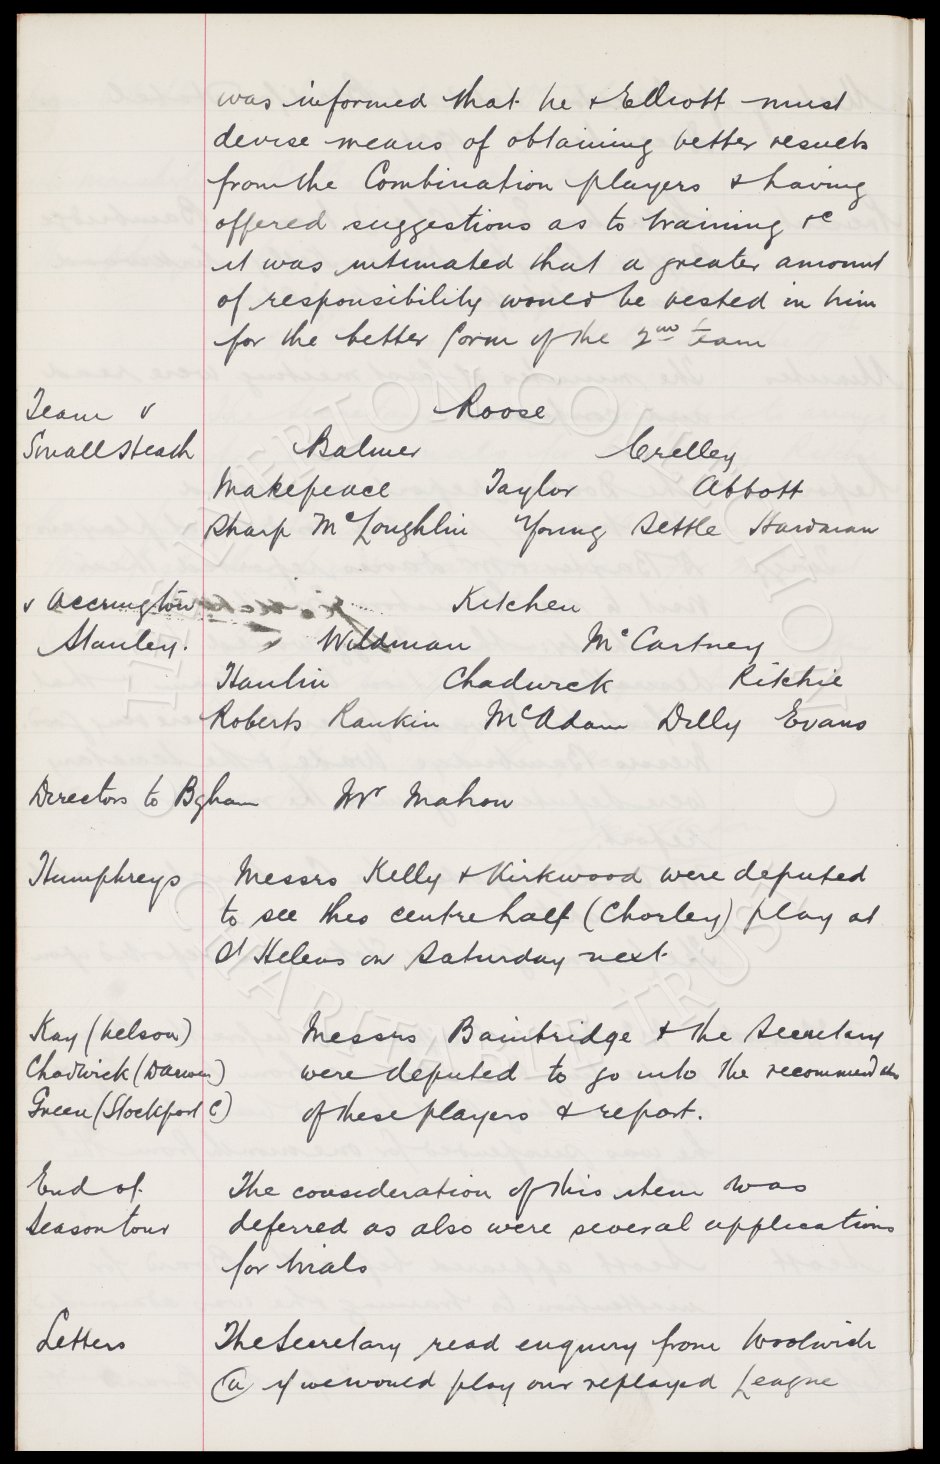 was informed that he & Elliott must
devise means of obtaining better results
from the Combination players & having
offered suggestions as to training &c
it was intimated that a greater amount
of responsibility would be vested in him
for the better form of the 2nd team
Team v Roose
Small Heath Balmer Crelley
Makepeace Taylor Abbott
Sharp McLoughlin Young Settle Hardman
v Accrington Kitchen
Stanley. Wildman McCartney
Hanlin Chadwick Ritchie
Roberts Rankin McAdam Dilly Evans
Directors to Bgham Mr Mahon
Humphreys Messrs Kelly & Kirkwood were deputed
to see this centre half (Chorley) play at
St Helens on Saturday next
Kay (Nelson) Messrs Bainbridge & the Secretary
Chadwick (Darwen) were deputed to go into the recommendations
Green (Stockport C) of these players & report.
End of The consideration of this item was
Season tour deferred as also were several applications
for trials
Letters The Secretary read enquiry from Woolwich
(a) if we would play our replayed League
THE EVERTON COLLECTION
CHARITABLE TRUST